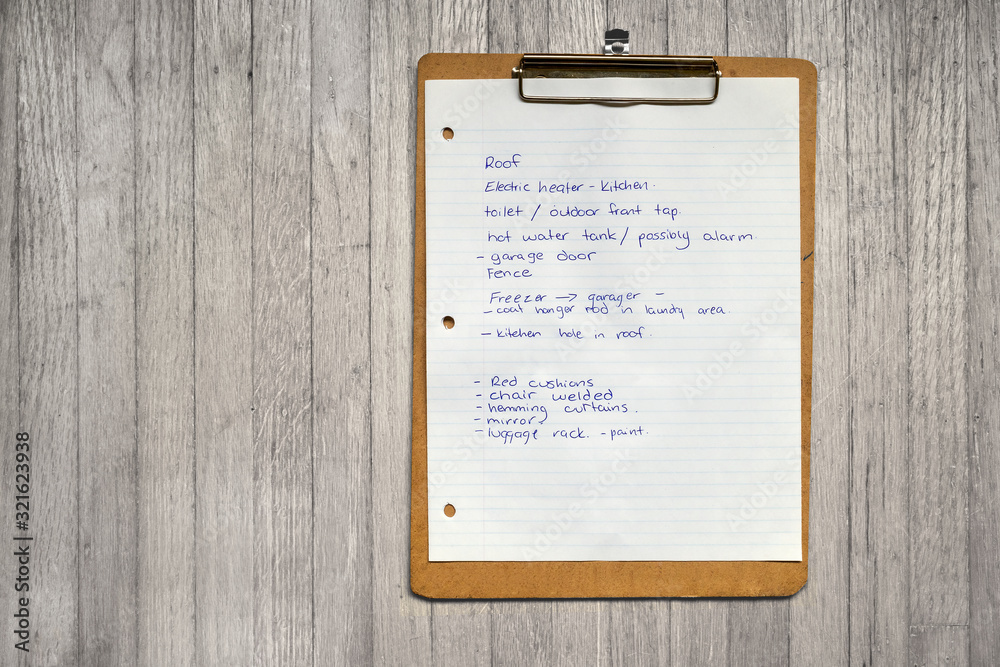 Roof
Electric heater - kitchen.
toilet / outdoor front tap.
hot water tank / possibly alarm.
- garage door
Fence
Freezer -> garager -
- coat hanger rod in laundry area.
- kitchen hole in roof.
- Red cushions
- chair welded
- hemming curtains.
- mirror
- luggage rack. - paint.
Adobe Stock | #321623938
Adobe Stock